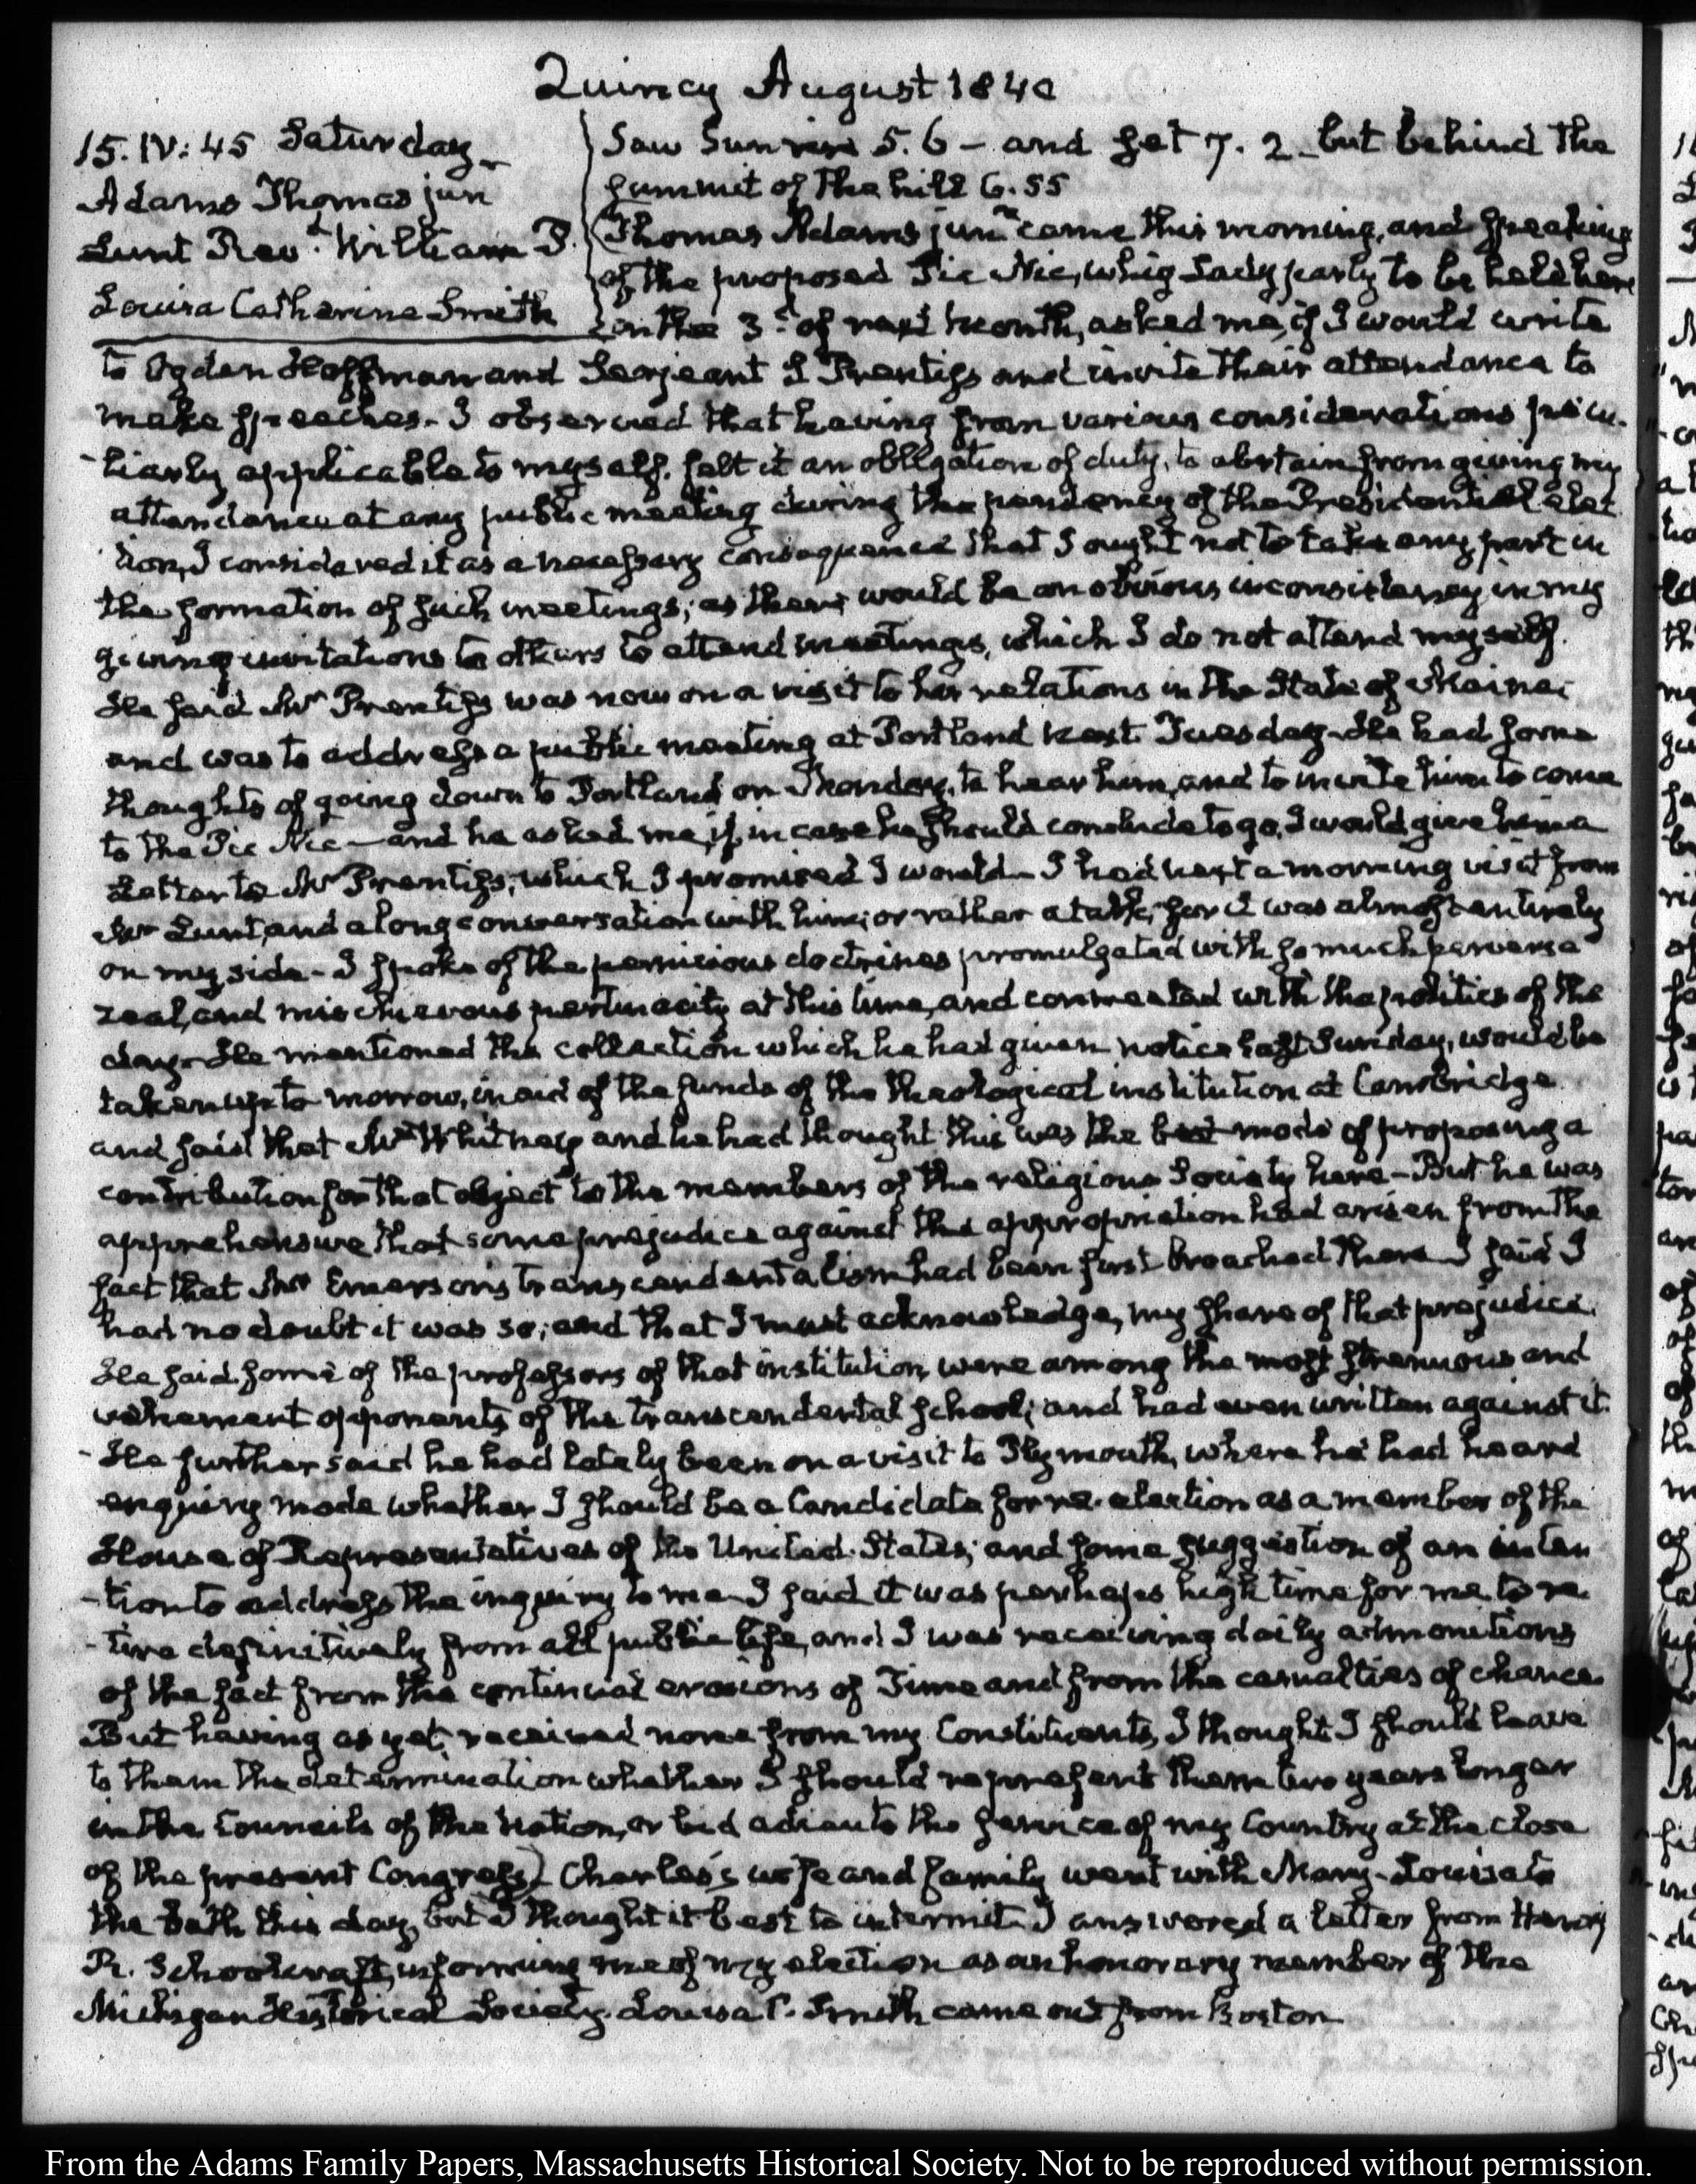 Quincy August 1840
15. IV: 45 Saturday
Adams Thomas jun
Lunt Revd. William P.
Louisa Catherine Smith
Saw Sun rise 5. 6 - and set 7. 2 - but behind the
summit of the hill 6.55
Thomas Adams junr. came this morning, and speaking
of the proposed Pic Nic, whig Lady party to be held here
on the 3d. of next month, asked me, if I would write
to Ogden Hoffman and Serjeant S Prentiss and invite their attendance to
make speeches - I observed that having from various considerations pecu-
-liarly applicable to myself, felt it an obligation of duty, to abstain from giving my
attendance at any public meeting during the pendency of the Presidential elec
tion, I considered it as a necessary consequence that I ought not to take any part in
the formation of such meetings; as there would be an obvious inconsistency in my
giving invitations to others to attend meetings, which I do not attend myself.
He said Mr Prentiss was now on a visit to his relations in the State of Maine;
and was to address a public meeting at Portland next Tuesday - He had some
thoughts of going down to Portland on Monday, to hear him, and to invite him to come
to the Pic Nic - and he asked me, if, in case he should conclude to go, I would give him a
Letter to Mr Prentiss; which I promised I would - I had next a morning visit from
Mr Lunt, and a long conversation with him; or rather a talk, for it was almost entirely
on my side - I spoke of the pernicious doctrines promulgated with so much perverse
zeal, and mischievous pertinacity at this time, and connected with the politics of the
day - He mentioned the collection which he had given notice last Sunday, would be
taken up to morrow, in aid of the funds of the theological institution at Cambridge
and said that Mr Whitney and he had thought this was the best mode of proposing a
contribution for that object to the members of the religious Society here - But he was
apprehensive that some prejudice against the appropriation had arisen from the
fact that Mr Emerson's transcendentalism had been first broached there - I said I
had no doubt it was so; and that I must acknowledge, my share of that prejudice.
He said some of the professors of that institution, were among the most strenuous and
vehement opponents of the transcendental school; and had even written against it.
- He further said he had lately been on a visit to Plymouth, where he had heard
enquiry made whether I should be a Candidate for re-election as a member of the
House of Representatives of the United States; and some suggestion of an inten
-tion to address the inquiry to me - I said it was perhaps high time for me to re
-tire definitively from all public life, and I was receiving daily admonitions
of the fact from the continual erosions of Time and from the casualties of chance.
But having as yet received none from my Constituents, I thought I should leave
to them the determination whether I should represent them two years longer
in the Councils of the Nation, or bid adieu to the service of my Country at the close
of the present Congress) Charles's wife and family went with Mary-Louisa to
the bath this day, but I thought it best to intermit. I answered a letter from Henry
R. Schoolcraft, informing me of my election as an honorary member of the
Michigan Historical Society. Louisa C. Smith came out from Boston
From the Adams Family Papers, Massachusetts Historical Society. Not to be reproduced without permission.